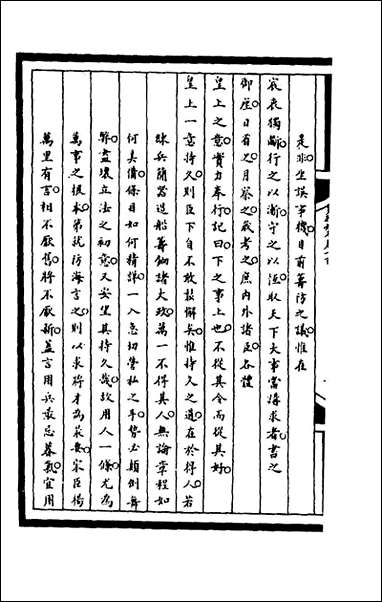 是非坐誤事機目前籌防之議惟在
宸衷獨斷行之以漸守之以恆取天下大事當講求者書之
御座日省之月察之歲考之庶內外諸臣各體
皇上之意實力奉行記曰下之事上也不從其令而從其好
皇上一意持久則臣下自不敢懈矣惟持久之道在於得人若
練兵簡器造船籌餉諸大政萬一不得其人無論章程如
何具備條目如何精詳一入急切營私之手勢必顛倒舞
弊盡壞立法之初意又安望其持久哉故用人一條尤為
萬事之根本第就防海言之則以求將才為最要宋臣楊
萬里有言相不厭舊將不厭新蓋言用兵最忌暮氣宜用